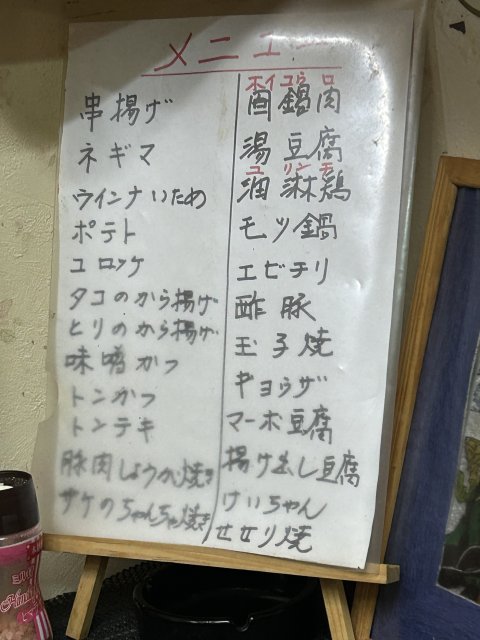 メニュー
串揚げ
ネギマ
ウインナいため
ポテト
コロッケ
タコのから揚げ
とりのから揚げ
味噌かつ
トンかつ
トンテキ
豚肉しょうが焼き
サケのちゃんちゃ焼き
ホイコウロ
酉鍋肉
湯豆腐
ユリンチ
油淋鶏
モツ鍋
エビチリ
酢豚
玉子焼
ギョウザ
マーホ豆腐
揚げ出し豆腐
けいちゃん
セセリ焼